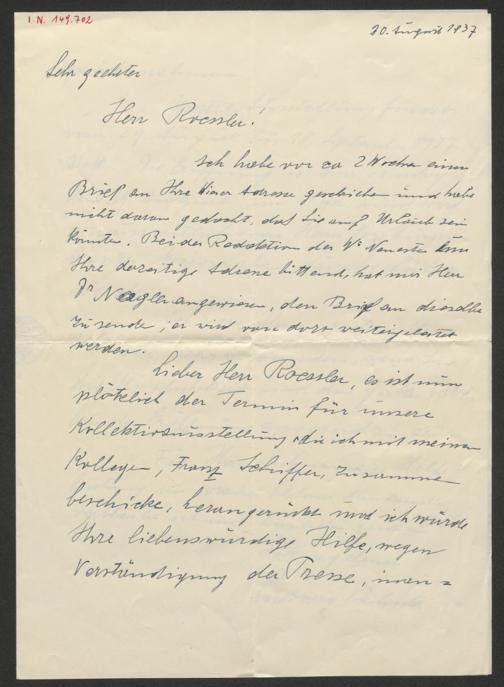 I N. 149.702
20. August 1937
Sehr geehrter
Herr Roessler!
Ich habe vor ca 2 Wochen einen
Brief an Ihre Wiener Adresse geschrieben und habe
nicht daran gedacht, daß Sie auf Urlaub sein
könnten. Bei der Redaktion der Wr Neuesten um
Ihre derzeitige Adresse bittend, hat mir Herr
Dr Nagler angewiesen, den Brief an dieselbe
zu senden, er wird von dort weitergeleitet
werden.
Lieber Herr Roessler, es ist nun
plötzlich der Termin für unsere
Kollektivausstellung, die ich mit meinem
Kollegen, Franz Schiffer, zusammen
beschicke, herangerückt und ich würde
Ihre liebenswürdige Hilfe, wegen
Verständigung der Presse, inan=